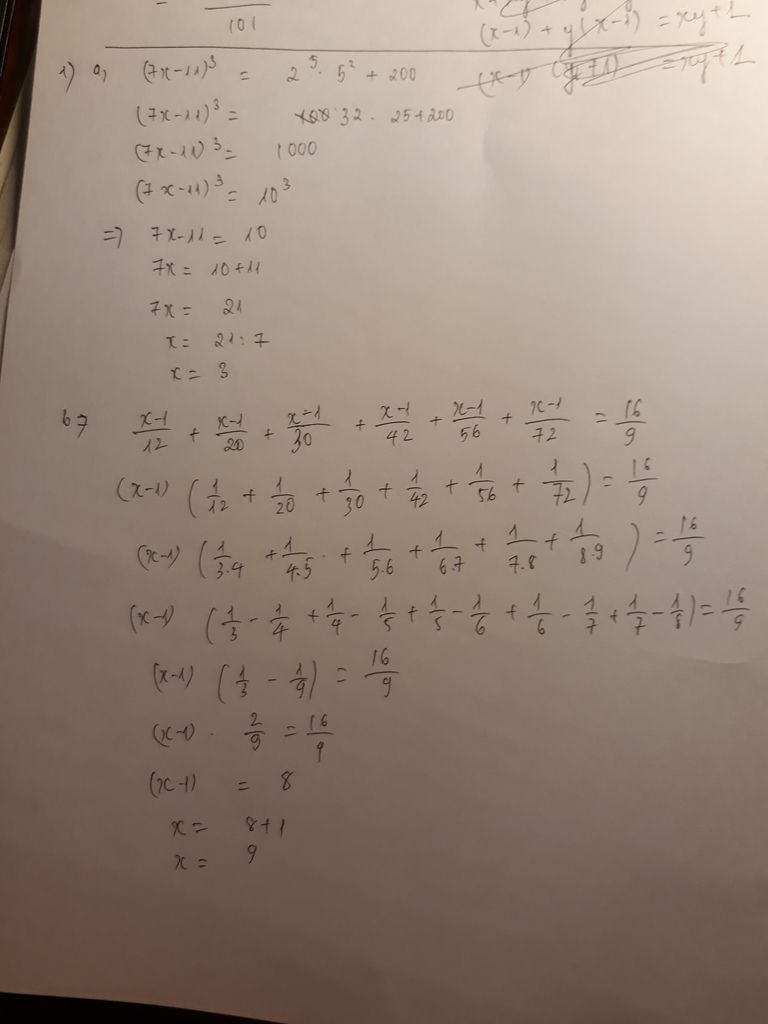 101
(x-1) + y(x-1) = xy+1
= xy+1
1) a, (7x-11)³ = 2⁵. 5² + 200
(7x-11)³ = 32 . 25+200
(7x-11)³ = 1000
(7x-11)³ = 10³
=> 7x-11 = 10
7x = 10+11
7x = 21
x = 21:7
x = 3
b, x-1/12 + x-1/20 + x-1/30 + x-1/42 + x-1/56 + x-1/72 = 16/9
(x-1) (1/12 + 1/20 + 1/30 + 1/42 + 1/56 + 1/72) = 16/9
(x-1) (1/3.4 + 1/4.5 . + 1/5.6 + 1/6.7 + 1/7.8 + 1/8.9) = 16/9
(x-1) (1/3 - 1/4 + 1/4 - 1/5 + 1/5 - 1/6 + 1/6 - 1/7 + 1/7 - 1/8) = 16/9
(x-1) (1/3 - 1/9) = 16/9
(x-1) . 2/9 = 16/9
(x-1) = 8
x = 8+1
x = 9